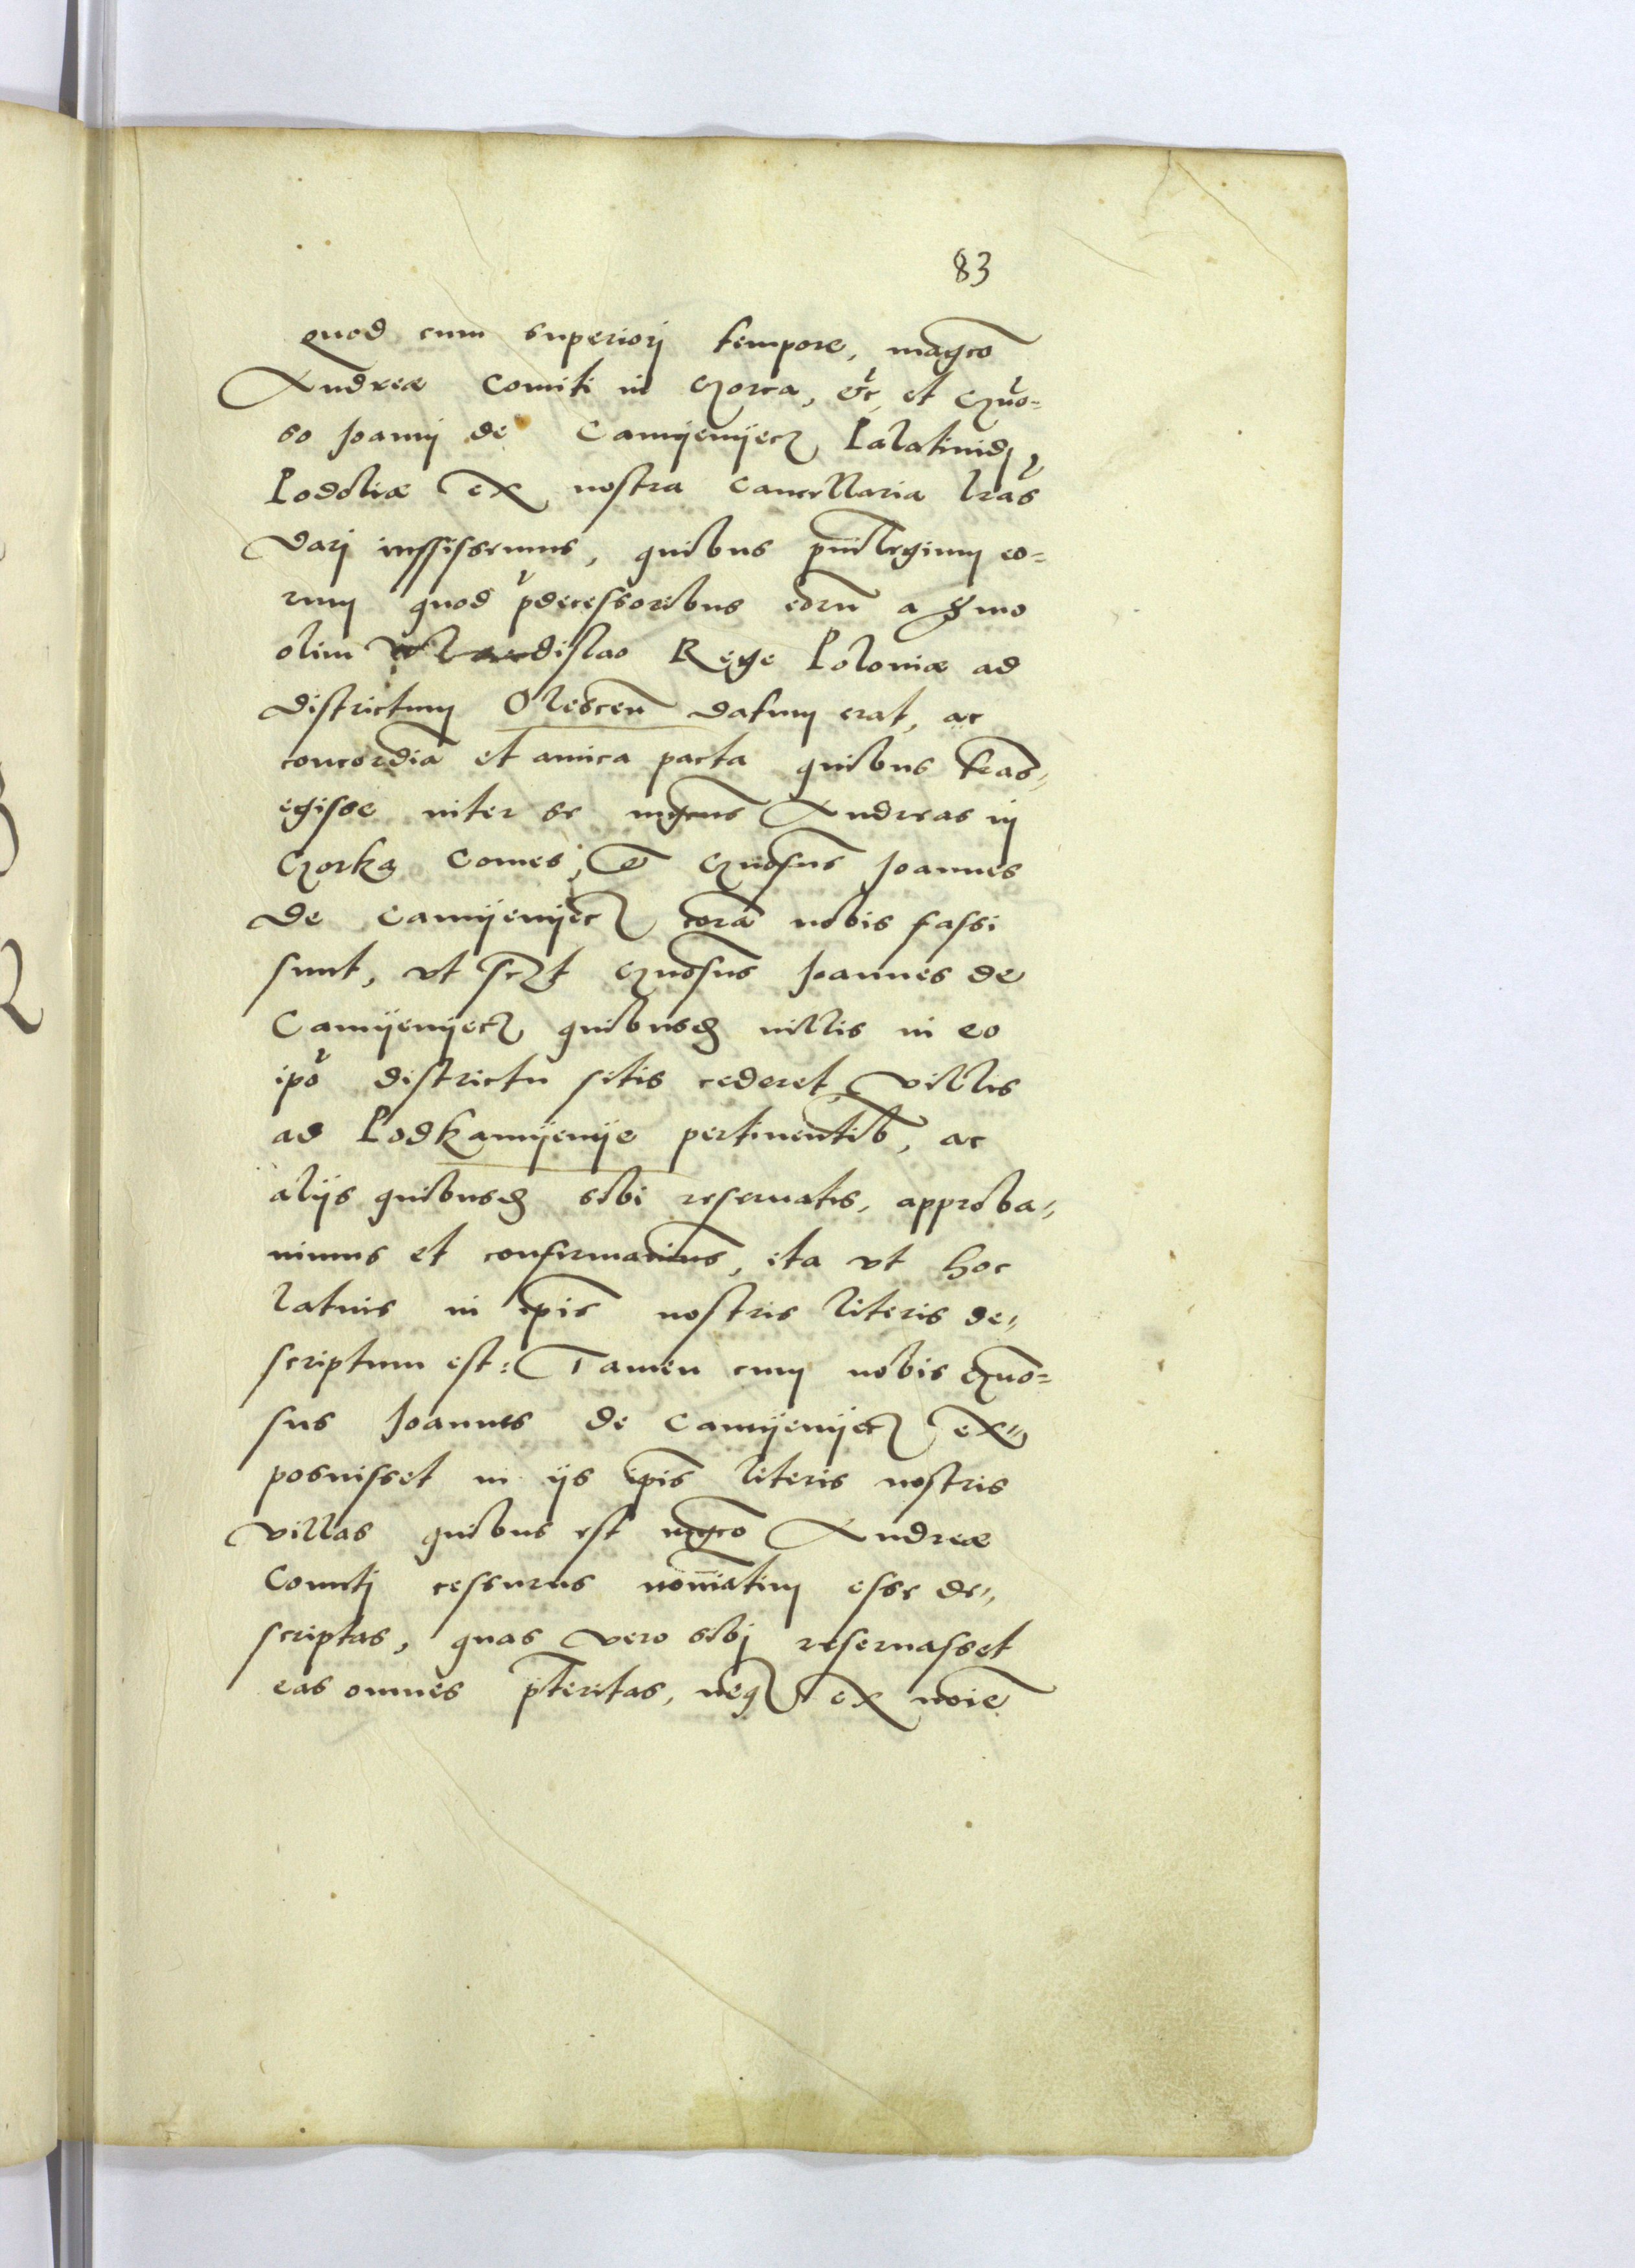 83
quod cum superiorj tempore, magco
Andreæ Comiti in Gorca, etc, et Gn̄o=
so Joannj de Camyenyecz Palatinidj
Podoliæ ex nostra Cancellaria lras
darj iussissemus, quibus priuilegium eo=
rum quod pdecessoribus eoru a smo
olim Wladislao Rege Poloniæ ad
districtum Olescen datum erat, ac
concordia et amica pacta quibus tras,,
egisse inter se mgcus Andreas in
Gorka Comes, et Gnosus Joannes
de Camyenyecz cora nobis fassi
sunt, vt sczt Gnosus Joannes de
Camyenyecz quibusd villis in eo
ipo districtu sitis cederet villis
ad Podkamyenye pertinentib, ac
alijs quibusd sibi reseruatis, approba,,
uimus et confirmauimus, ita vt hoc
latius in ipis nostris literis de,,
scriptum est: Tamen cum nobis Gn̄o=
sus Joannes de Camyenyecz ex,,
posuisset in ijs ipis literis nostris
villas quibus est mgco Andreæ
Comitj cessurus nominatim esse de,,
scriptas, quas vero sibj reseruasset
eas omnes pteritas, neq ex noie